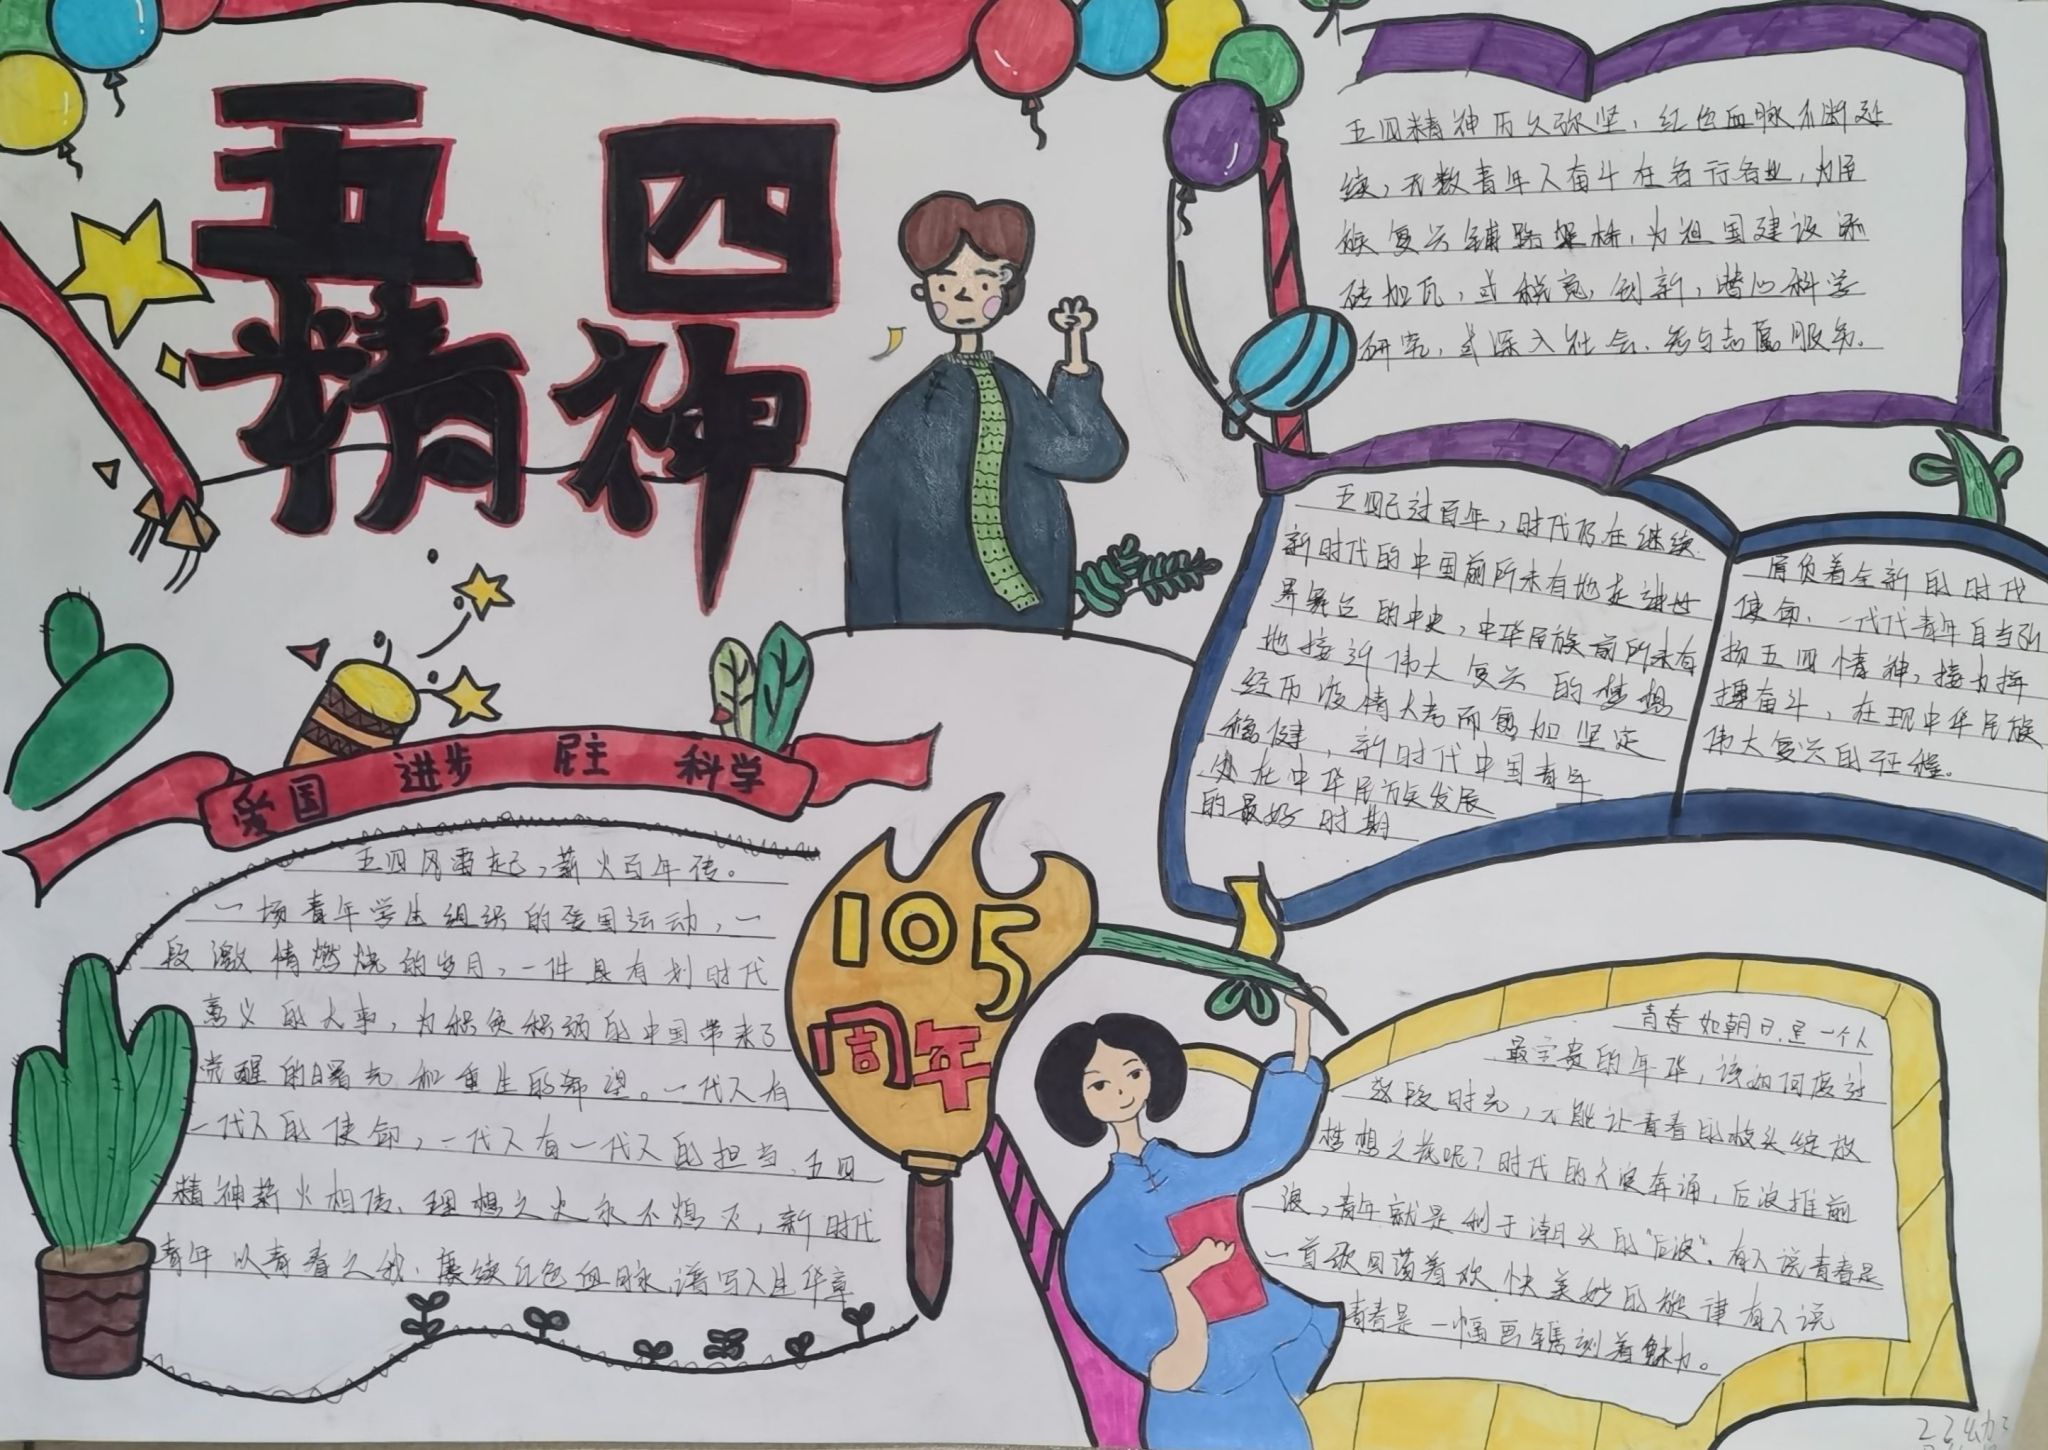 五四
精神
五四精神历久弥坚，红色血脉不断延
续，无数青年人奋斗在各行各业，为民
族复兴铺路架桥，为祖国建设添
砖加瓦，或 创新，潜心科学
研究，或深入社会、参与志愿服务。
五四已过百年，时代仍在继续
新时代的中国前所未有地走进世
界舞台的中央，中华民族前所未有
地接近伟大复兴的梦想
经历疫情大考而愈加坚定
稳健，新时代中国青年
处在中华民族发展
的最好时期
肩负着全新的时代
使命，一代代青年自当弘
扬五四情神，接力挥
奋斗，在现中华民族
伟大复兴的征程。
爱国 进步 民主 科学
五四风雷起，薪火百年传。
一场青年学生组织的爱国运动，一
段激情燃烧的岁月，一件具有划时代
意义的大事，为积贫积弱的中国带来了
觉醒的曙光和重生的希望。一代人有
一代人的使命，一代人有一代人的担当，五四
精神薪火相传、理想之火永不熄灭，新时代
青年以青春之我，赓续红色血脉，谱写人生华章
105
周年
青春如朝日，是一个人
最宝贵的年华，该如何度过
这段时光，才能让青春的枝头绽放
梦想之花呢？时代的大浪奔涌，后浪推前
浪，青年就是利于潮头的“后浪”。有人说青春是
一首歌回荡着欢快美妙的旋律有人说
青春是一幅画镌刻着魅力。